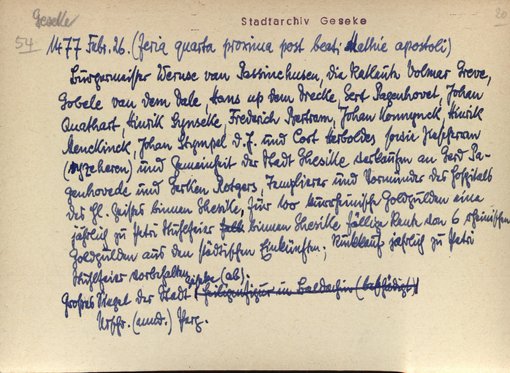 Geseke
Stadtarchiv Geseke
20
54
1477 Febr. 26. (feria quarta proxima post beati Mathie apostoli)
Bürgermeister Wernse van Passinchusen, die Ratleute Volmer Greve,
Gobele van dem Dale, Hans up dem Drecke, Gert Pagenhovet, Johan
Quathart, Hinrik Gynseke, Frederich Bertram, Johan Konnynck, Hinrik
Menckinck, Johan Stympel d. J. und Cort Herboldes sowie
und Gemeinheit der Stadt Gheseke verkaufen an Gerd Pa-
genhovede und Gerken Rotgers, Templierer und Vormünder des Hospitals
des Hl. Geistes binnen Gheseke, für 100 kurrheinische Goldgulden eine
jährlich zu Petri Stuhlfeier binnen Gheseke fällige Rente von 6 rheinischen
Goldgulden aus den städtischen Einkünften; Rückkauf jährlich zu Petri
Stuhlfeier vorbehalten.
Großes Siegel der Stadt (ab). (Heiligenfigur in Baldachin (beschädigt))
Urschr. (mnd.) Perg.